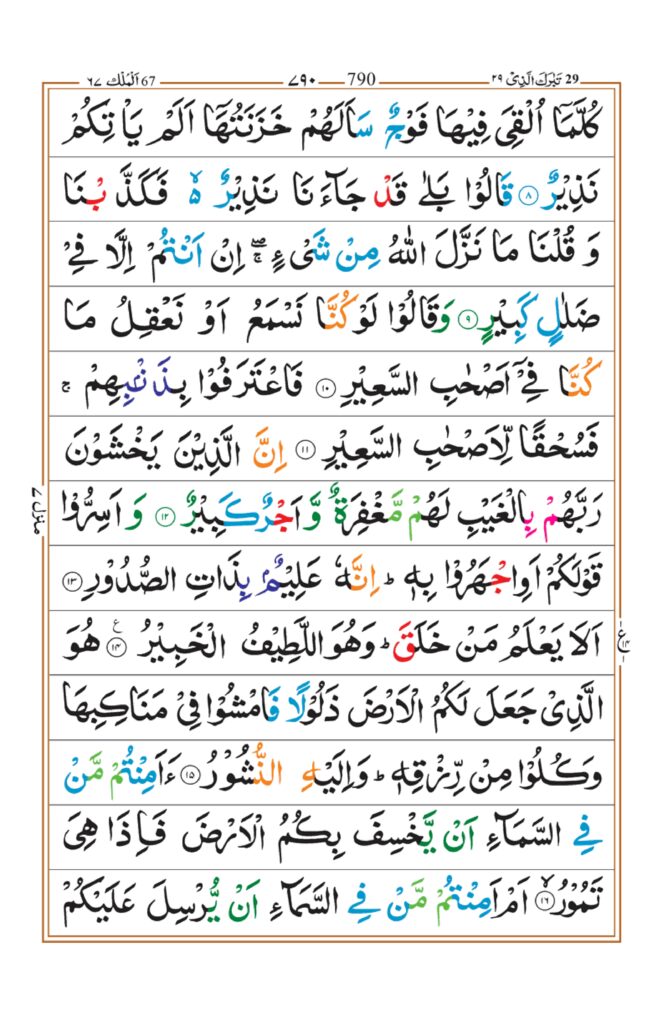 29 تَبٰرَكَ الَّذِىْ ٢٩
790 ٧٩٠
67 اَلْمُلْك ٦٧
كُلَّمَاۤ اُلْقِىَ فِيْهَا فَوْجٌ سَاَلَهُمْ خَزَنَتُهَاۤ اَلَمْ يَاْتِكُمْ
نَذِيْرٌ ﴿٨﴾ قَالُوْا بَلٰى قَدْ جَآءَنَا نَذِيْرٌ ۙ۬ فَكَذَّبْنَا
وَ قُلْنَا مَا نَزَّلَ اللّٰهُ مِنْ شَىْءٍ ۚۖ اِنْ اَنْتُمْ اِلَّا فِىْ
ضَلٰلٍ كَبِيْرٍ ﴿٩﴾ وَقَالُوْا لَوْ كُنَّا نَسْمَعُ اَوْ نَعْقِلُ مَا
كُنَّا فِىْۤ اَصْحٰبِ السَّعِيْرِ ﴿١٠﴾ فَاعْتَرَفُوْا بِذَنْۢبِهِمْ ۚ
فَسُحْقًا لِّاَصْحٰبِ السَّعِيْرِ ﴿١١﴾ اِنَّ الَّذِيْنَ يَخْشَوْنَ
رَبَّهُمْ بِالْغَيْبِ لَهُمْ مَّغْفِرَةٌ وَّاَجْرٌ كَبِيْرٌ ﴿١٢﴾ وَ اَسِرُّوْا
قَوْلَكُمْ اَوِاجْهَرُوْا بِهٖ ؕ اِنَّهٗ عَلِيْمٌۢ بِذَاتِ الصُّدُوْرِ ﴿١٣﴾
اَلَا يَعْلَمُ مَنْ خَلَقَ ؕ وَهُوَ اللَّطِيْفُ الْخَبِيْرُ ﴿١٤﴾ ع هُوَ
الَّذِىْ جَعَلَ لَكُمُ الْاَرْضَ ذَلُوْلًا فَامْشُوْا فِىْ مَنَاكِبِهَا
وَكُلُوْا مِنْ رِّزْقِهٖ ؕ وَاِلَيْهِ النُّشُوْرُ ﴿١٥﴾ ءَاَمِنْتُمْ مَّنْ
فِى السَّمَآءِ اَنْ يَّخْسِفَ بِكُمُ الْاَرْضَ فَاِذَا هِىَ
تَمُوْرُ ۙ﴿١٦﴾ اَمْ اَمِنْتُمْ مَّنْ فِى السَّمَآءِ اَنْ يُّرْسِلَ عَلَيْكُمْ
منزل ٧